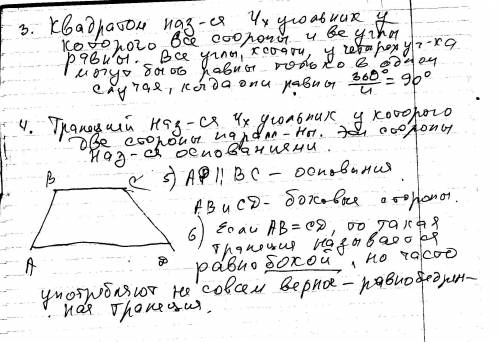 3. Квадратом наз-ся 4х угольник у
которого все стороны и все углы
равны. Все углы, кстати, у четырехуг-ка
могут быть равны только в одном
случае, когда они равны 360°/4 = 90°
4. Трапецией наз-ся 4х угольник у которого
две стороны паралл-ны. Эти стороны
наз-ся основаниями.
B C 5) AD || BC - основания
AB и CD - боковые стороны.
6) Если AB = CD, то такая
трапеция называется
A D равнобокой, но часто
употребляют не совсем верное - равнобедрен-
ная трапеция.